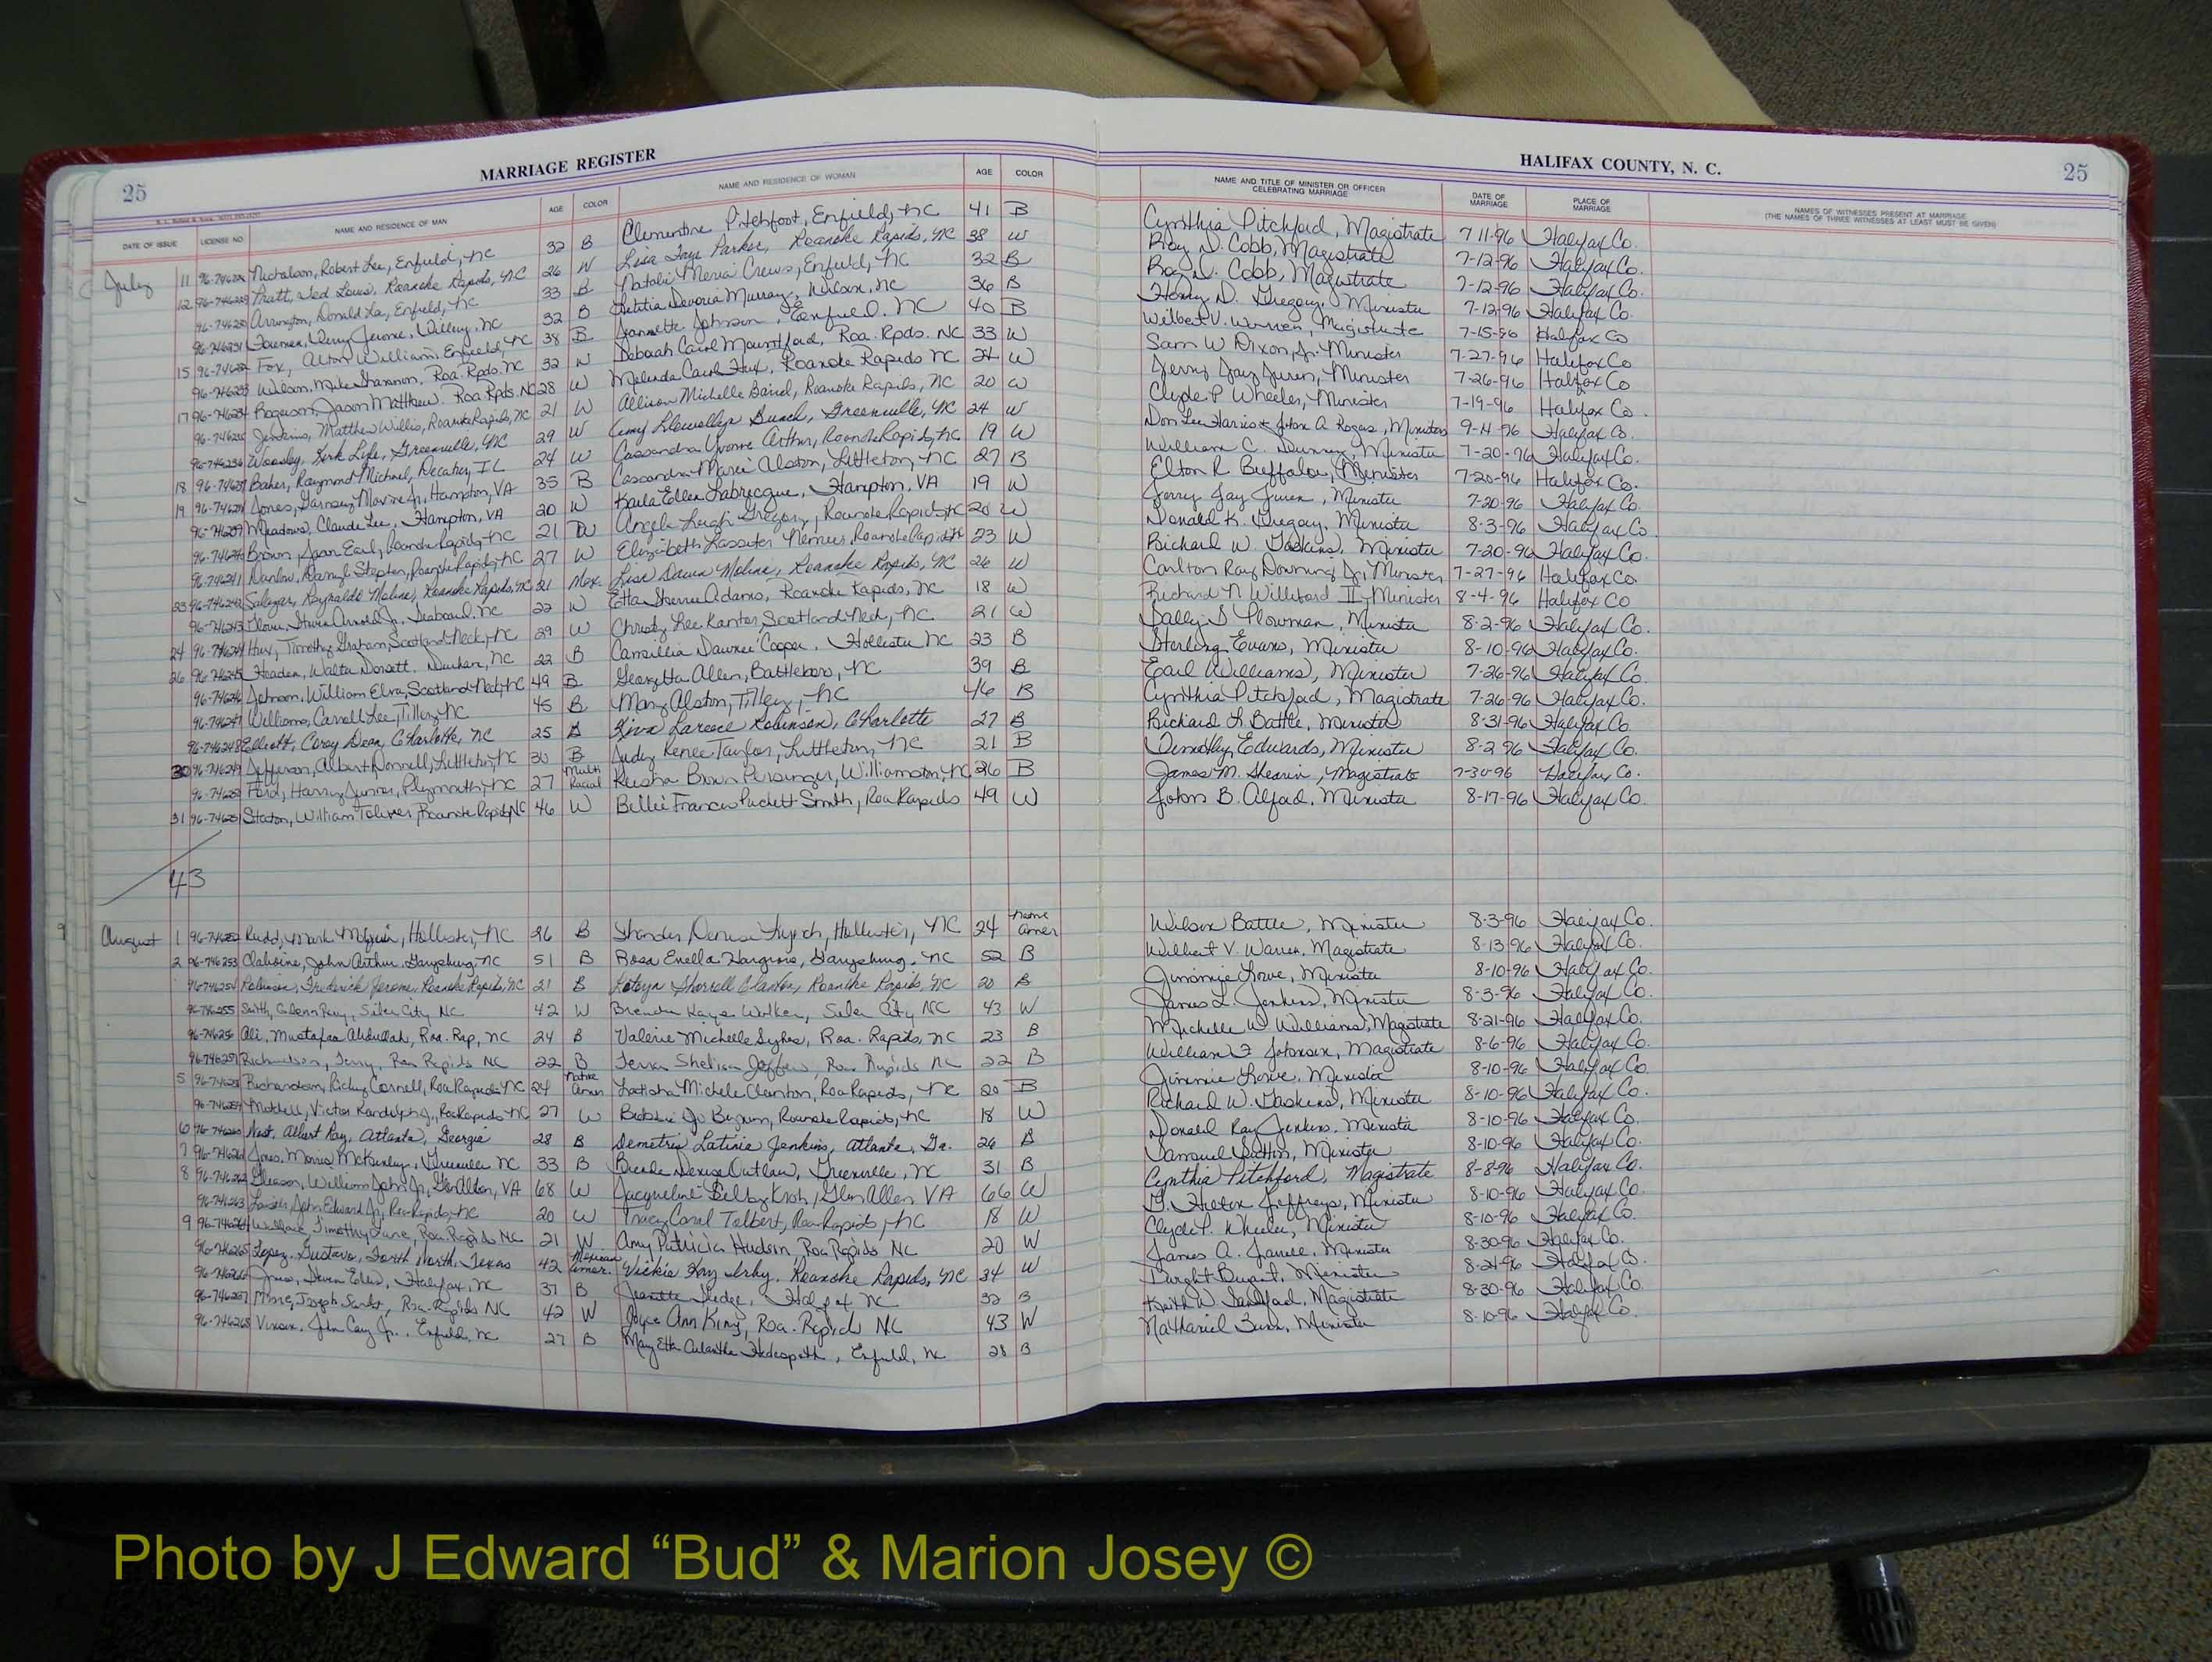 MARRIAGE REGISTER
HALIFAX COUNTY, N. C.
25
25
DATE OF ISSUE LICENSE NO. NAME AND RESIDENCE OF MAN AGE COLOR NAME AND RESIDENCE OF WOMAN AGE COLOR NAME AND TITLE OF MINISTER OR OFFICER CELEBRATING MARRIAGE DATE OF MARRIAGE PLACE OF MARRIAGE NAMES OF WITNESSES PRESENT AT MARRIAGE (THE NAMES OF THREE WITNESSES AT LEAST MUST BE GIVEN)
July 11 Nicholson, Robert Lee, Enfield, NC 32 B Clementine Enfield, NC 41 B Cynthia Pitchford, Magistrate 7-11-96 Halifax Co.
12 96-746229 Pratt, Ted Louis, Roanoke Rapids, NC 26 W Lisa Faye Parker, Roanoke Rapids, NC 38 W Roy D. Cobb, Magistrate 7-12-96 Halifax Co.
Arrington, Donald Lee, Enfield, NC 33 B Natalie Crews, Enfield, NC 32 B Roy D. Cobb, Magistrate 7-12-96 Halifax Co.
96-746231 Jerome, NC 32 B Letitia Murray, NC 36 B D. Gregory, Minister 7-12-96 Halifax Co.
15 96-746232 Fox, Alton William, Enfield, NC 38 B Jannette Johnson, Enfield, NC 40 B Wilbert V. Warren, Magistrate 7-15-96 Halifax Co
96-746233 Wilson, Mike Shannon, Roa. Rpds. NC 32 W Deborah Carol Mountford, Roa. Rpds. NC 33 W Sam W Dixon, Jr. Minister 7-27-96 Halifax Co
17 96-746234 Rogerson, Jason Matthew Roa. Rpds. NC 28 W Melinda Carol Hux, Roanoke Rapids NC 24 W Jerry Jay Minister 7-26-96 Halifax Co
Jenkins, Matthew Willis, Roanoke Rapids, NC 21 W Allison Michelle Baird, Roanoke Rapids, NC 20 W Clyde P Wheeler, Minister 7-19-96 Halifax Co.
96-746236 Kirk Lyle, Greenville, NC 29 W Amy Llewellyn Bunch, Greenville, NC 24 W Don Lee Harris & John A. Rogers, Ministers Halifax Co.
18 96-746237 Baker, Raymond Michael, Decatur, IL 24 W Cassandra Yvonne Arthur, Roanoke Rapids, NC 19 W William C. Minister 7-20-96 Halifax Co.
19 Jones, Hampton, VA 35 B Cassandra Marie Alston, Littleton, NC 27 B Elton R Buffaloe, Minister 7-20-96 Halifax Co.
96-746239 Meadows, Claude Lee, Hampton, VA 20 W Karla Ellen Labrecque, Hampton, VA 19 W Jerry Jay Minister 7-20-96 Halifax Co.
Brown, Earl, Roanoke Rapids, NC 21 W Angela Leigh Gregory, Roanoke Rapids, NC 20 W Donald K. Gregory, Minister 8-3-96 Halifax Co.
96-746241 Darryl Stephen, Roanoke Rapids, NC 27 W Elizabeth Lassiter Roanoke Rapids NC 23 W Richard W. Gaskins, Minister 7-20-96 Halifax Co.
23 96-746242 Salazar, Reynaldo Roanoke Rapids, NC 21 Mex. Lisa Dawn Roanoke Rapids, NC 26 W Carlton Ray Downing Jr., Minister 7-27-96 Halifax Co.
96-746243 Arnold Jr. Seaboard, NC 22 W Etta Sherrie Adams, Roanoke Rapids, NC 18 W Richard N Williford II, Minister 8-4-96 Halifax Co
24 Hux, Timothy Graham, Scotland Neck, NC 29 W Christy Lee Kanter, Scotland Neck, NC 21 W Plowman, Minister 8-2-96 Halifax Co.
26 96-746245 Headen, Walter Dorsett, Durham, NC 22 B Camillia Cooper, Hollister NC 23 B Sterling Evans, Minister 8-10-96 Halifax Co.
96-746246 Johnson, William Scotland Neck, NC 49 B Georgetta Allen, Battleboro, NC 39 B Earl Williams, Minister 7-26-96 Halifax Co.
96-746247 Williams, Carroll Lee, Tillery, NC 45 B Mary Alston, Tillery, NC 46 B Cynthia Pitchford, Magistrate 7-26-96 Halifax Co.
96-746248 Elliott, Corey Dean, Charlotte, NC 25 B Robinson, Charlotte 27 B Richard L. Battle, Minister 8-31-96 Halifax Co
30 96-746249 Jefferson, Albert Donnell, Littleton, NC 30 B Judy Renee Taylor, Littleton, NC 21 B Timothy Edwards, Minister 8-2-96 Halifax Co.
Ford, Harry Junior, Plymouth, NC 27 Multi Racial Keisha Brown Williamston, NC 26 B James M. Shearin, Magistrate 7-30-96 Halifax Co.
31 Staton, William Toliver, Roanoke Rapids, NC 46 W Billie Frances Puckett Smith, Roa Rapids 49 W John B. Alford, Minister 8-17-96 Halifax Co.
43
August 1 96-746252 Rudd, Mark Hollister, NC 26 B Denise Lynch, Hollister, NC 24 Native Amer Wilson Battle, Minister 8-3-96 Halifax Co.
2 96-746253 John Arthur, Garysburg, NC 51 B Rosa Enella Hargrove, Garysburg, NC 52 B Wilbert V. Warren, Magistrate 8-13-96 Halifax Co.
96-746254 Robinson, Frederick Jerome, Roanoke Rapids, NC 21 B Shorrell Clanton, Roanoke Rapids, NC 20 B Jimmie Lowe, Minister 8-10-96 Halifax Co.
96-746255 Smith, Glenn Ray, Siler City NC 42 W Brenda Kaye Walker, Siler City NC 43 W James L. Jenkins, Minister 8-3-96 Halifax Co.
Ali, Mustafaa Abdullah, Roa. Rap, NC 24 B Valerie Michelle Sykes, Roa. Rapids, NC 23 B Michelle W Williams, Magistrate 8-21-96 Halifax Co.
96-746257 Richardson, Terry, Roa Rapids NC 22 B Roa Rapids NC 22 B William F Johnson, Magistrate 8-6-96 Halifax Co.
5 96-746258 Richardson, Ricky Cornell, Roa Rapids NC 24 Native Amer Latisha Michele Clanton, Roa Rapids, NC 20 B Jimmie Lowe, Minister 8-10-96 Halifax Co.
96-746259 Mitchell, Victor Randolph Jr., Roa Rapids NC 27 W Bobbie Jo Roanoke Rapids, NC 18 W Richard W. Gaskins, Minister 8-10-96 Halifax Co.
6 96-746260 Albert Ray, Atlanta, Georgia 28 B Demetris Latina Jenkins, Atlanta, Ga. 26 B Donald Ray Jenkins, Minister 8-10-96 Halifax Co.
7 96-746261 Jones, Morris McKinley, Greenville NC 33 B Denise Outlaw, Greenville, NC 31 B Samuel Sutton, Minister 8-10-96 Halifax Co.
8 96-746262 Gleason, William John Jr., Glen Allen, VA 68 W Jacqueline Glen Allen VA 66 W Cynthia Pitchford, Magistrate 8-8-96 Halifax Co.
96-746263 John Edward Jr., Roa Rapids, NC 20 W Tracy Carol Talbert, Roa Rapids, NC 18 W Jeffreys, Minister 8-10-96 Halifax Co.
9 96-746264 Wallace, Timothy Roa Rapids NC 21 W Amy Patricia Hudson, Roa Rapids NC 20 W Clyde P. Wheeler, Minister 8-10-96 Halifax Co.
96-746265 Lopez, Gustavo, Forth Worth, Texas 42 Mexican Amer. Vickie Kay Roanoke Rapids, NC 34 W James A. Minister 8-30-96 Halifax Co.
96-746266 Halifax, NC 37 B Jeanette Hedge, Halifax NC 32 B Dwight Bryant, Minister 8-24-96 Halifax Co.
96-746267 Joseph Roa. Rapids NC 42 W Joyce Ann King, Roa. Rapids NC 43 W Keith W. Magistrate 8-30-96 Halifax Co.
96-746268 Vinson, John Jr., Enfield, NC 27 B Mary Etta Hedgepeth, Enfield, NC 28 B Nathaniel Minister 8-10-96 Halifax Co.
Photo by J Edward “Bud” & Marion Josey ©